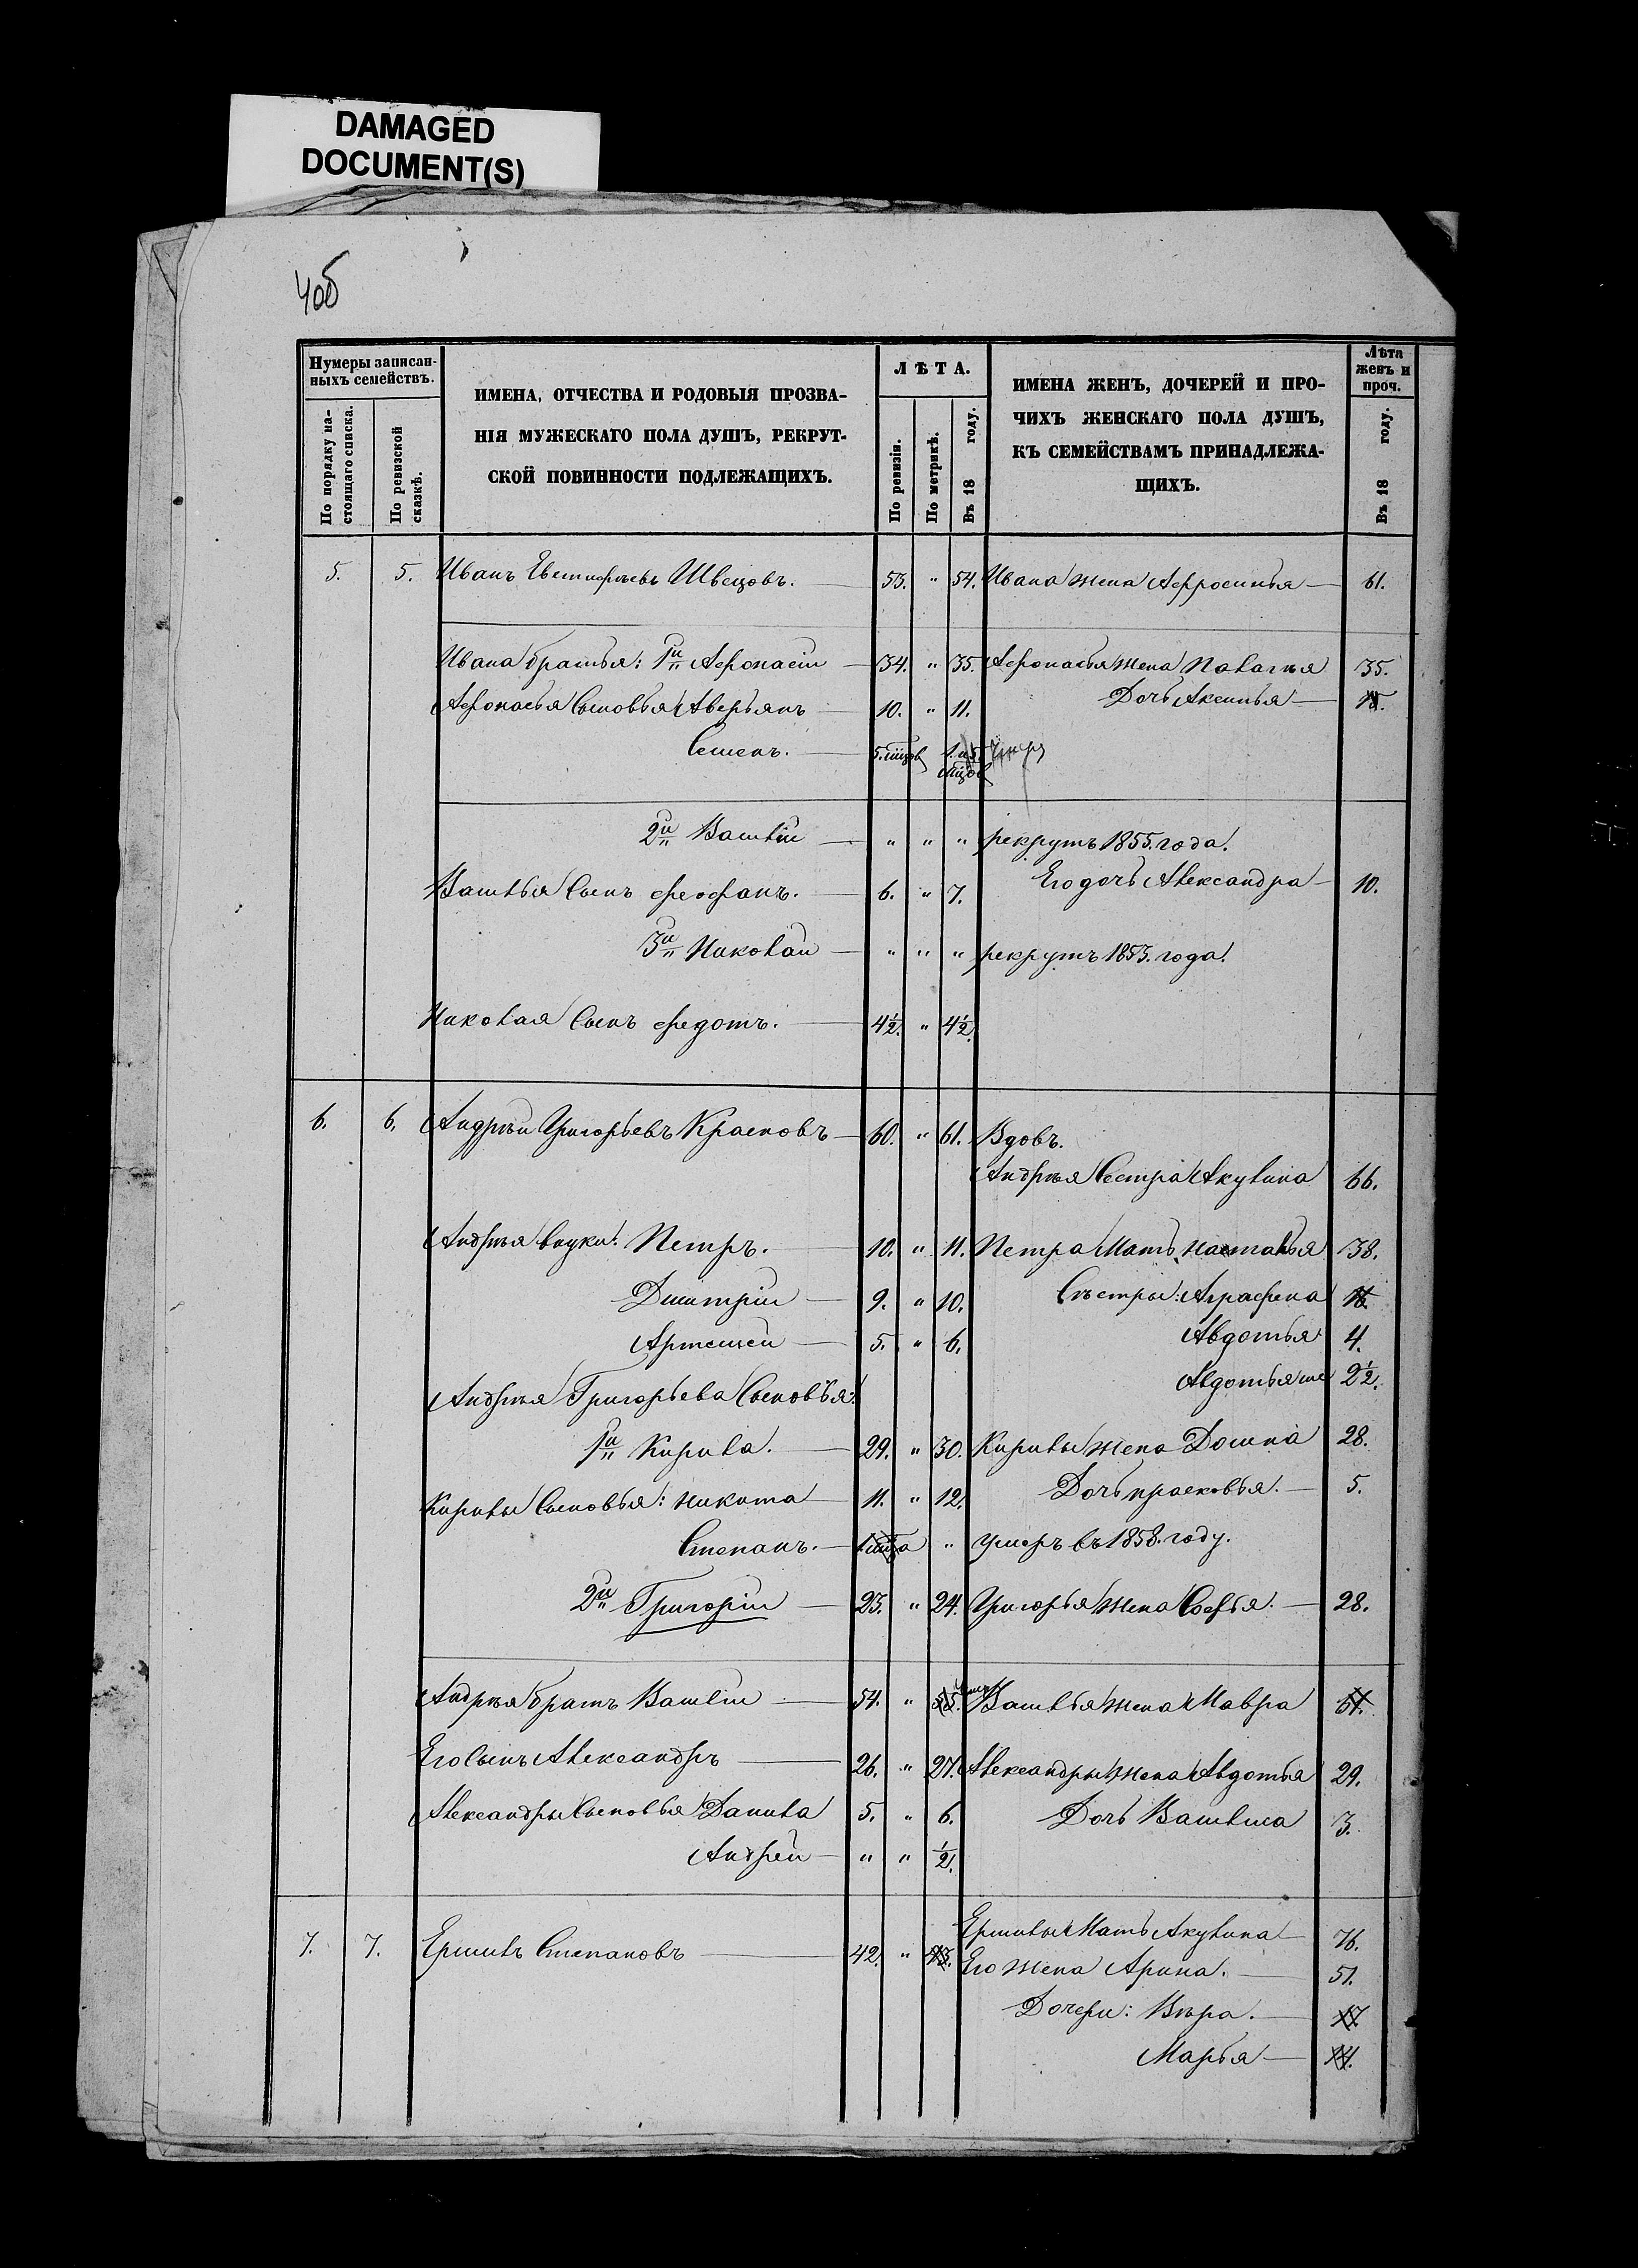 DAMAGED
DOCUMENT(S)
40б
Нумеры записан-
ныхъ семействъ.
По порядку на-
стоящаго списка.
По ревизской
сказкѣ.
ИМЕНА, ОТЧЕСТВА И РОДОВЫЯ ПРОЗВА-
НІЯ МУЖЕСКАГО ПОЛА ДУШЪ, РЕКРУТ-
СКОЙ ПОВИННОСТИ ПОДЛЕЖАЩИХЪ.
ЛѢТА.
По ревизіи.
По метрикѣ.
Въ 18 году.
ИМЕНА ЖЕНЪ, ДОЧЕРЕЙ И ПРО-
ЧИХЪ ЖЕНСКАГО ПОЛА ДУШЪ,
КЪ СЕМЕЙСТВАМЪ ПРИНАДЛЕЖА-
ЩИХЪ.
Лѣта
женъ и
проч.
Въ 18 году.
5. 5. Иванъ Евтифѣевъ Швецовъ. 53. " 54. Ивана жена Афросинья 61.
Ивана братья: 1й Афонасій 34. " 35. Афонасья жена Палагѣя 35.
Афонасья Сыновья Аверьянъ 10. " 11. Дочь Аксинья
Семенъ. 5. мцов 1. и 5. умеръ
мцов
2й Василій " " " рекрутъ 1855. года.
Василья Сынъ Феофанъ. 6. " 7. Его дочь Александра 10.
3й Николай " " " рекрутъ 1853. года.
Николая Сынъ Федотъ. 4½. " 4½.
6. 6. Андрѣй Григорьевъ Красновъ 60. " 61. Вдовъ.
Андрѣя Сестра Акулина 66.
Андрѣя внуки: Петръ. 10. " 11. Петра Мать Наталья 38.
Дмитрій 9. " 10. Сѣстры: Аграфена
Артемей 5. " 6. Авдотья 4.
Андрѣя Григорьева Сыновья: Авдотья же 2½.
1й Кирила. 29. " 30. Кирилы жена Домна 28.
Кирилы Сыновья: Никита 11. " 12. Дочь прасковья. 5.
Степанъ. 1 мца " умеръ въ 1858. году.
2й Григорій 23. " 24. Григорья жена Софья. 28.
Андрѣя братъ Василій 54. " 55. умеръ Василья жена Мавра 51.
Его Сынъ Александръ 26. " 27. Александры жена Авдотья 29.
Александры Сыновья Данила 5. " 6. Дочь Василиса 3.
Андрей " " ½.
7. 7. Ермилъ Степановъ 42. " 43. Ермилы Мать Акулина 76.
Его жена Арина. 51.
Дочери: Вѣра. 17.
Марья 14.